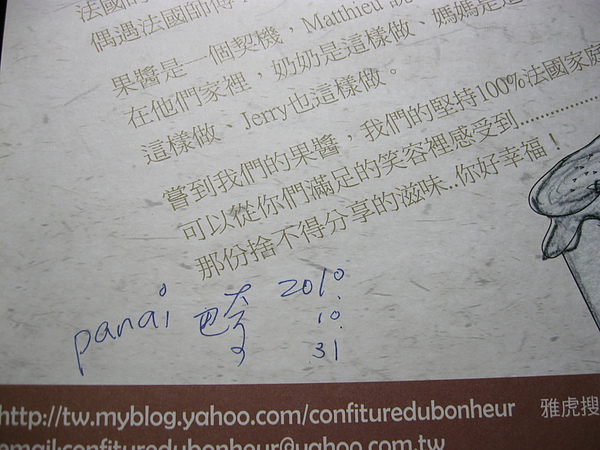 法國的
偶遇法國師傅
果醬是一個契機，Matthieu 說
在他們家裡，奶奶是這樣做、媽媽是這
這樣做、Jerry也這樣做。
嘗到我們的果醬，我們的堅持100%法國家庭
可以從你們滿足的笑容裡感受到..................
那份捨不得分享的滋味..你好幸福！
panai 巴奈 2010.
10.
31
http://tw.myblog.yahoo.com/confituredubonheur 雅虎搜
email:confituredubonheur@yahoo.com.tw